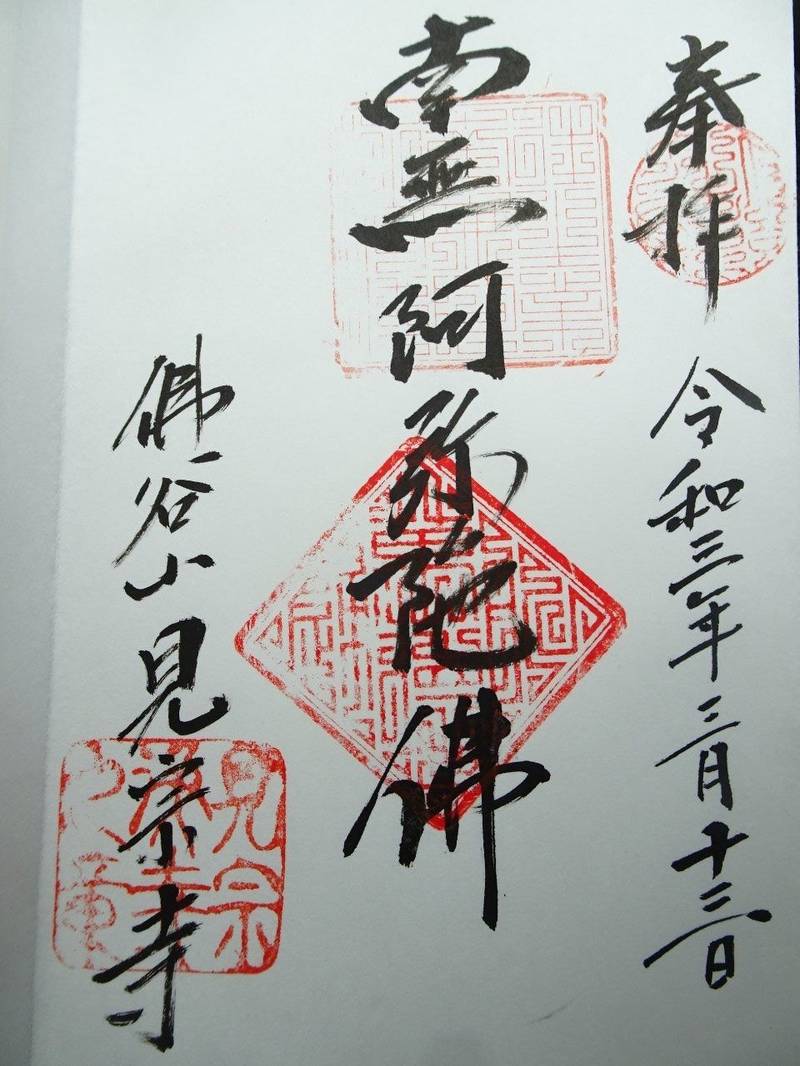 奉拝 令和三年三月十三日
南無阿弥陀佛
佛谷山見宗寺